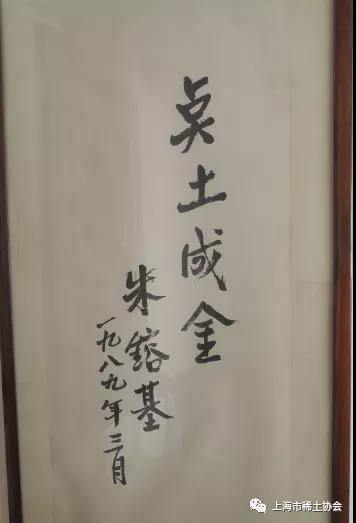 点土成金
朱镕基
一九八九年三月
上海市稀土协会